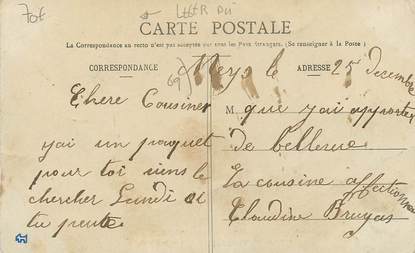 70f
CARTE POSTALE
La Correspondance au recto n'est pas acceptée par tous les Pays étrangers. (Se renseigner à la Poste)
CORRESPONDANCE
ADRESSE
Meys le 25 decembre
(69)
Chere Cousine
yai un paquet
pour toi viens le
chercher Lundi si
tu peute
M. que yai apporter
de bellevue
ta cousine affectionnee
Claudine Bruyas